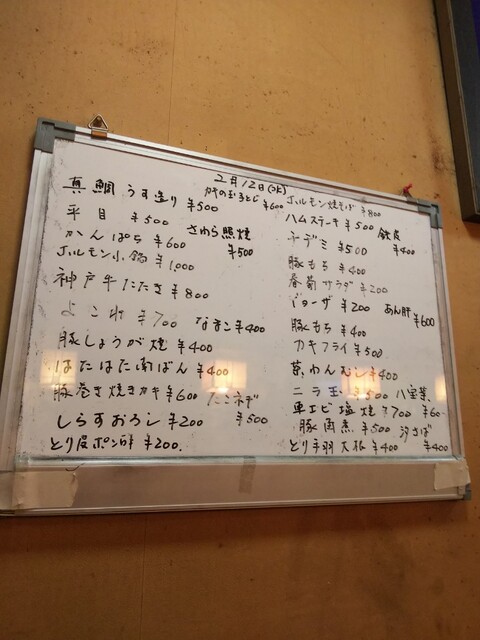 2月12日(水)
真鯛 うす造り ¥500
かきの玉子とじ ¥600
平目 ¥500
さわら照焼 ¥500
かんぱち ¥600
ホルモン小鍋 ¥1,000
神戸牛たたき ¥800
よこわ ¥700 なまこ ¥400
豚しょうが焼 ¥400
はたはた南ばん ¥400
豚巻き焼きカキ ¥600
¥500
しらすおろし ¥200
とり皮ポン酢 ¥200.
ホルモン焼そば ¥800
ハムステーキ ¥500
¥400
チヂミ ¥500
豚もち ¥400
春菊サラダ ¥200
ギョーザ ¥200 あん肝 ¥600
豚もち ¥400
カキフライ ¥500
茶わんむし ¥400
ニラ玉 ¥500 八宝菜
車エビ塩焼 ¥700 ¥60
豚角煮 ¥500 汐さば
とり手羽大根 ¥400 ¥400